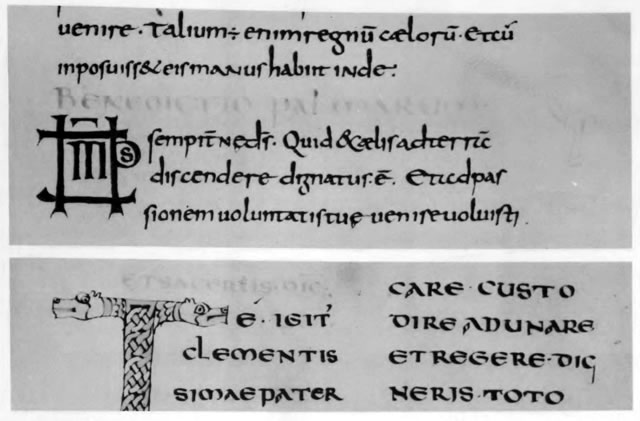 uenire · Talium ÷ enim regnū cælorū · Et cū
inposuiss& eis manus habiit inde:
BENEDICTIO palmarum
OMPS sempit̄ne d̄s. Quid & cælis ad terrā
discendere dignatus.ē. Et ad pas
sionem uoluntatis tuę uenire uoluisti.
TE · IGIT'
CLEMENTIS
SIMAE PATER
CARE · CUSTO
DIRE ADUNARE
ET REGERE · DIG
NERIS · TOTO